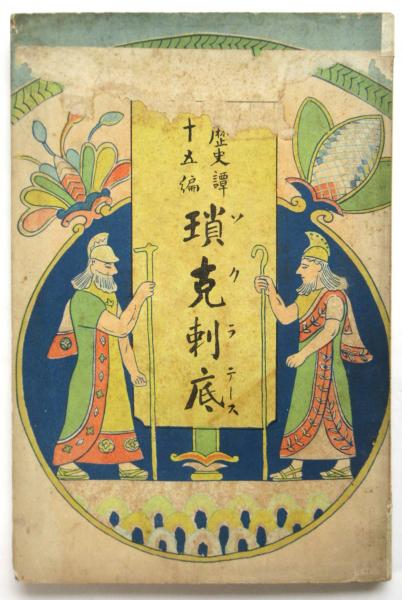 歴史譚
十五編
瑣克剌底
ソクラテース